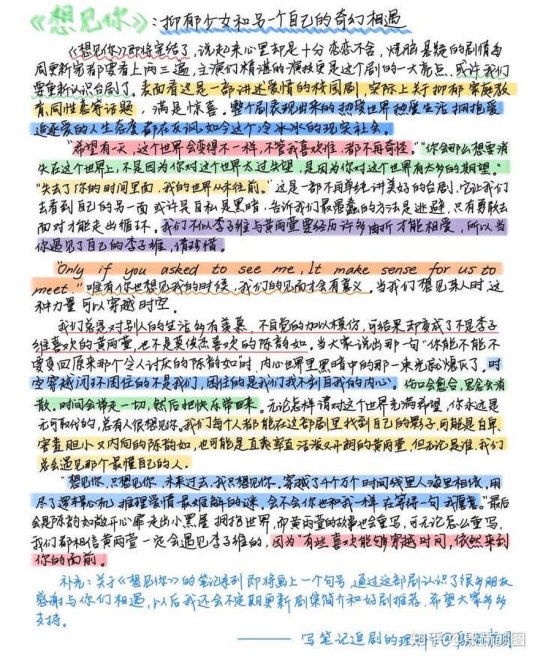 《想见你》:抑郁少女和另一个自己的奇幻相遇
《想见你》即将完结了,说起来心里却是十分恋恋不舍,烧脑悬疑的剧情每
周更新完都要看上两三遍,主演们精湛的演技更是这个剧的一大亮点,或许我们
要重新认识台剧了。表面看这是一部讲述爱情的校园剧,实际上关于抑郁、家庭教
育、同性恋等话题,满是惊喜。整个剧表现出来的热爱世界热爱生活、拥抱爱
追逐爱的人生态度都在反讽如今这个冷冰冰的现实社会。
"希望有一天,这个世界会变得不一样,不管我喜欢谁,都不再奇怪。""你会那么想要消
失在这个世界上,不是因为你对这个世界太过失望,是因为你对这个世界有太多的期望。"
"失去了你的时间里面,我的世界从未往前。"这是一部不再单纯讲美好的台剧,它让我们
去看到自己的另一面或许是自私是黑暗,告诉我们最愚蠢的方法是逃避,只有勇敢去
面对才能走出循环。我们不似李子维与黄雨萱要经历许多曲折才能相爱,所以当
你遇见了自己的李子维,请珍惜。
"Only if you asked to see me, It make sense for us to
meet."唯有你也想见我的时候,我们的见面才会有意义。当我们想见某人时,这
种力量可以穿越时空。
我们总要对别人的生活所有羡慕,不自觉的加以模仿,可结果却变成了不是李子
维喜欢的黄雨萱,也不是莫俊杰喜欢的陈韵如。当大家说出那一句"你能不能不
要变回原来那个令人讨厌的陈韵如"时,内心世界里黑暗中的那一束光就熄灭了。时
空穿越闭环困住的不是我们,困住的是我们找不到自我的内心。伤口会愈合,黑夜会消
散。时间会带走一切,然后把快乐带回来。无论怎样请对这个世界充满希望,你永远是
无可取代的,总有人很想见你。我们每个人都能在这部剧里找到自己的影子,可能是自卑、
害羞胆小又内向的陈韵如,也可能是直来直去活泼又开朗的黄雨萱,但无论是谁,我们
总会遇见那个最懂自己的人。
"想见你,只想见你,未来过去,我只想见你。穿越了千个万个时间线里人海里相依,用
尽了逻辑心机,推理爱情最难解的谜。会不会你也和我一样在等待一句我愿意。"最后
会是陈韵如敞开心扉走出小黑屋,拥抱世界,而黄雨萱的故事也会重写,可无论怎么重写,
我们都相信黄雨萱一定会遇见李子维的,因为"有些喜欢能够穿越时间,依然来到
你的面前。
补充:关于《想见你》的笔记来到即将画上一个句号,通过这部剧认识了很多朋友
感谢与你们相遇,以后我还会不定期更新剧集简介和好剧推荐,希望大家多多
支持。
—— 写笔记追剧的理
知乎